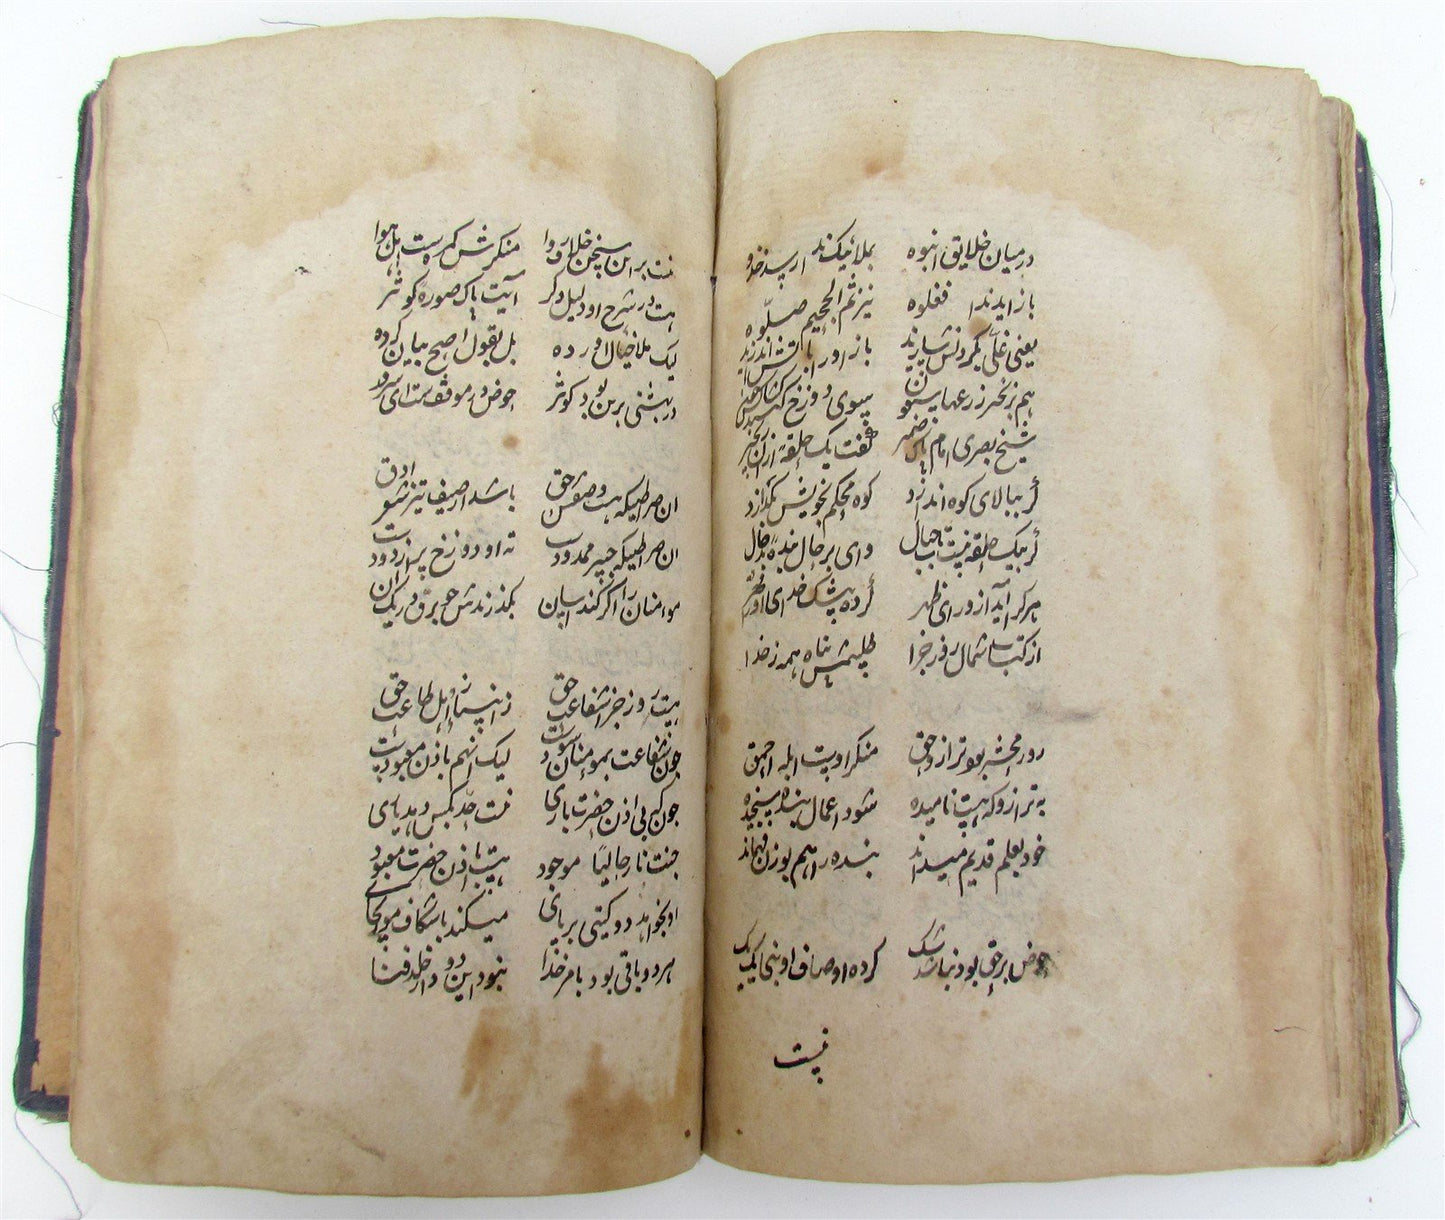 درمیان خلایق انبوه بملایک ندا رسد خذوه
باز اید ندا فغلوه نیز ثم الجحیم صلوه
یعنی غلی بگردنش سازند باز او را باتش اندازند
هم بزنجیر ذرعها سبعون بسوی دوزخ کشند
شیخ بصری امام پاک ضمیر گفت یک حلقه ازان زنجیر
گر ببالای کوه اندازد کوه محکم بخویش بگدازد
گر بیک حلقه نیست تاب جبال وای بر حال بنده بدخال
هر کرا آید از ورای ظهر کرده پیشک خدای او
از کتاب شمال روز جزا طلبیمش پناه همه ز خدا
روز محشر بود ترازو حق منکر اوست ابله احمق
به ترازو که هست نامیده شود اعمال بنده سنجیده
خود بعلم قدیم میداند بنده را هم بوزن فهماند
حوض بر حق بود نباشد شک کرده اوصاف او نبی یک یک
نیست
نیست بر این سخن خلاف روا منکرش گمره است اهل هوا
هست در شرح او دلیل دگر آیت پاک صورة کوثر
لیک ملا خیال اورده بل بقول اصح بیان کرده
در بهشتی برین بود کوثر حوض در موقف است ای سرور
ان صراطیکه هست وصفش حق باشد از سیف تیز شعر ادق
ان صراطیکه جسر ممدود است ته او دوزخ پر از دود است
موامنان را اگر کند اسان بگذرندش چو برق در یک ان
هست روز جزا شفاعت حق ز انبیا و ز اهل طاعت حق
چون شفاعت بمومنان سود است لیک انهم باذن معبود است
چون که بی اذن حضرت باری نیست حد کس دهد یاری
جنت نار حالیا موجود هست با ذن حضرت معبود
او بخواهد دو گیتی بر پای میکند باشکاف مو یکجای
هر دو باقی بود بامر خدا نبود این دو دار خلد فنا